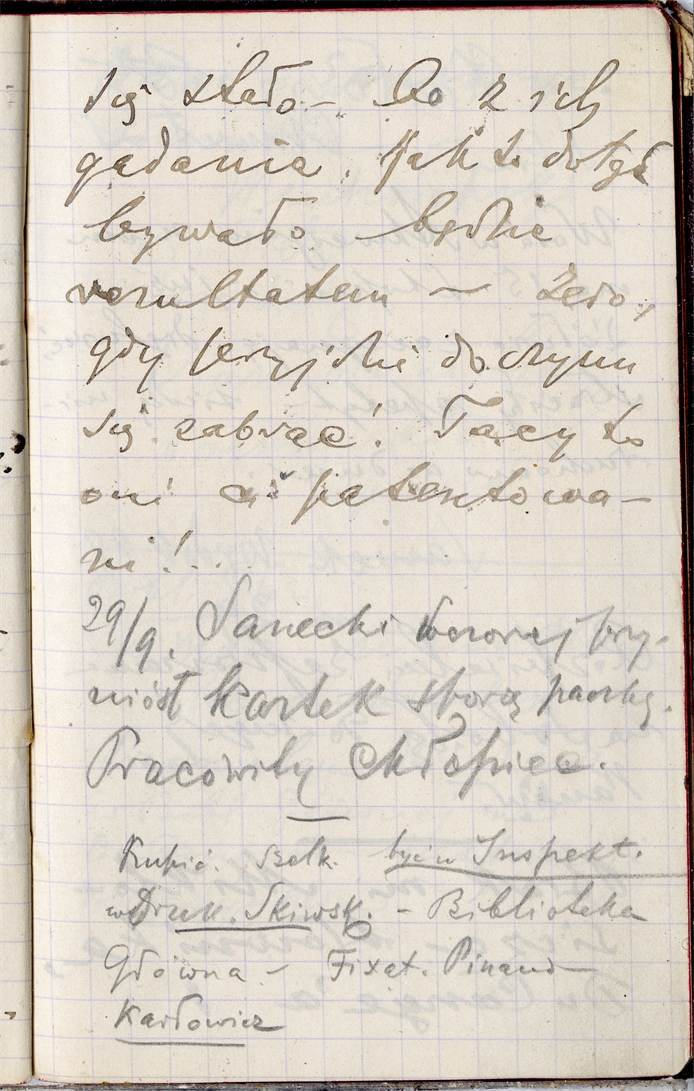 się stało – Co z ich
gadania, jak to dotąd
bywało będzie
rezultatem — Zero,
gdy przyjdzie do czynu
się zabrać! Tacy to
oni są patentowa-
ni!...
29/9. Sanecki wczoraj przy-
niósł kartek sporą paczkę.
Pracowity chłopiec.
Kupić. Szelk. być u Inspekt.
w Druk. Skiwsk. – Biblioteka
Główna – Fixat. Pinaud
Karłowicz